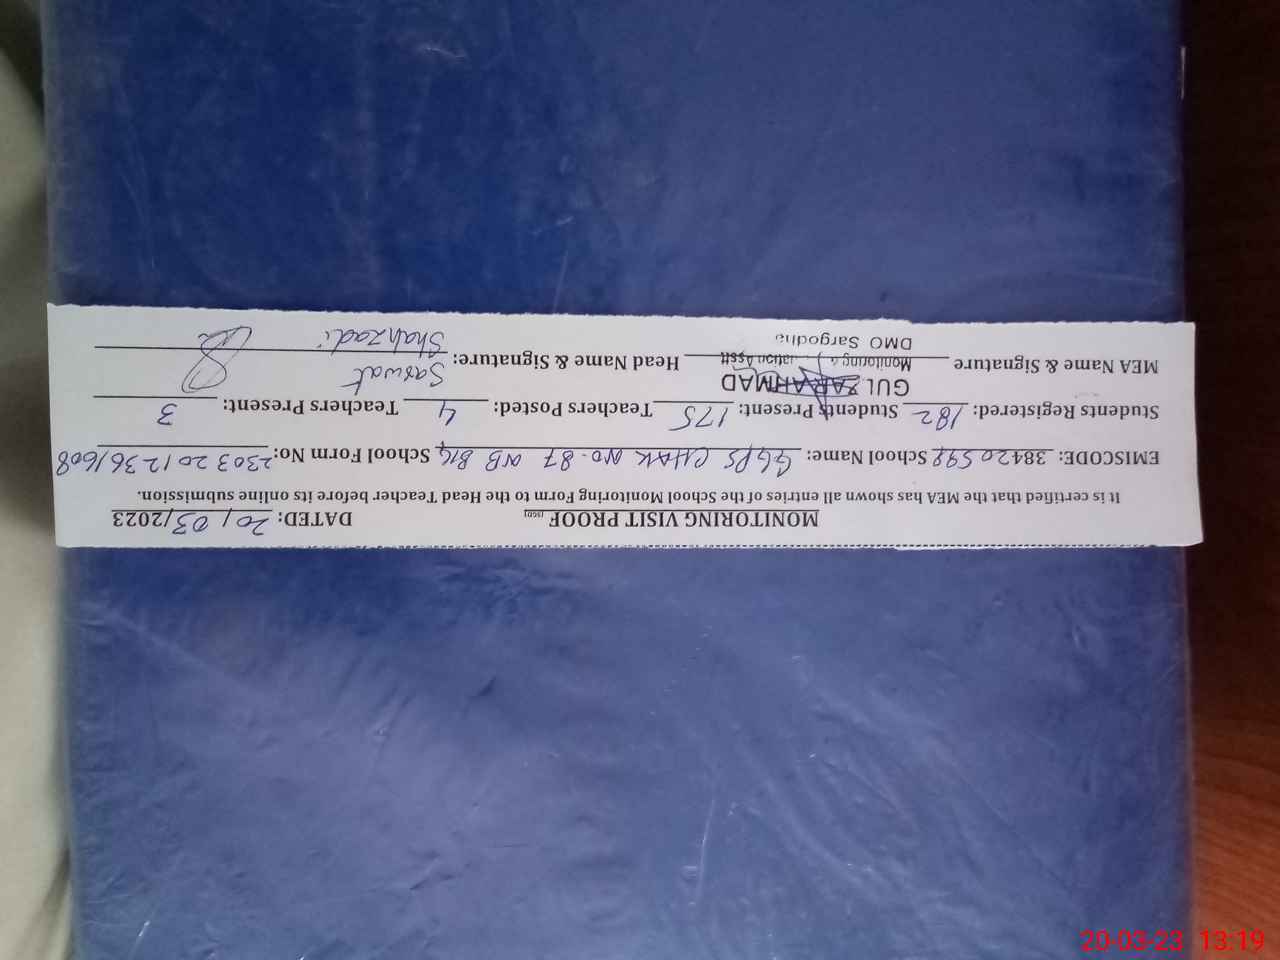 MONITORING VISIT PROOF DATED: 20/03/2023
It is certified that the MEA has shown all entries of the School Monitoring Form to the Head Teacher before its online submission.
EMISCODE: 38420598 School Name: GGPS CHAK NO. 87 NB BIG School Form No: 23032012361608
Students Registered: 182 Students Present: 175 Teachers Posted: 4 Teachers Present: 3
GULZAR AHMAD
MEA Name & Signature Monitoring & Head Name & Signature: Sarwat Shahzadi
DMO Sargodha
20-03-23 13:19